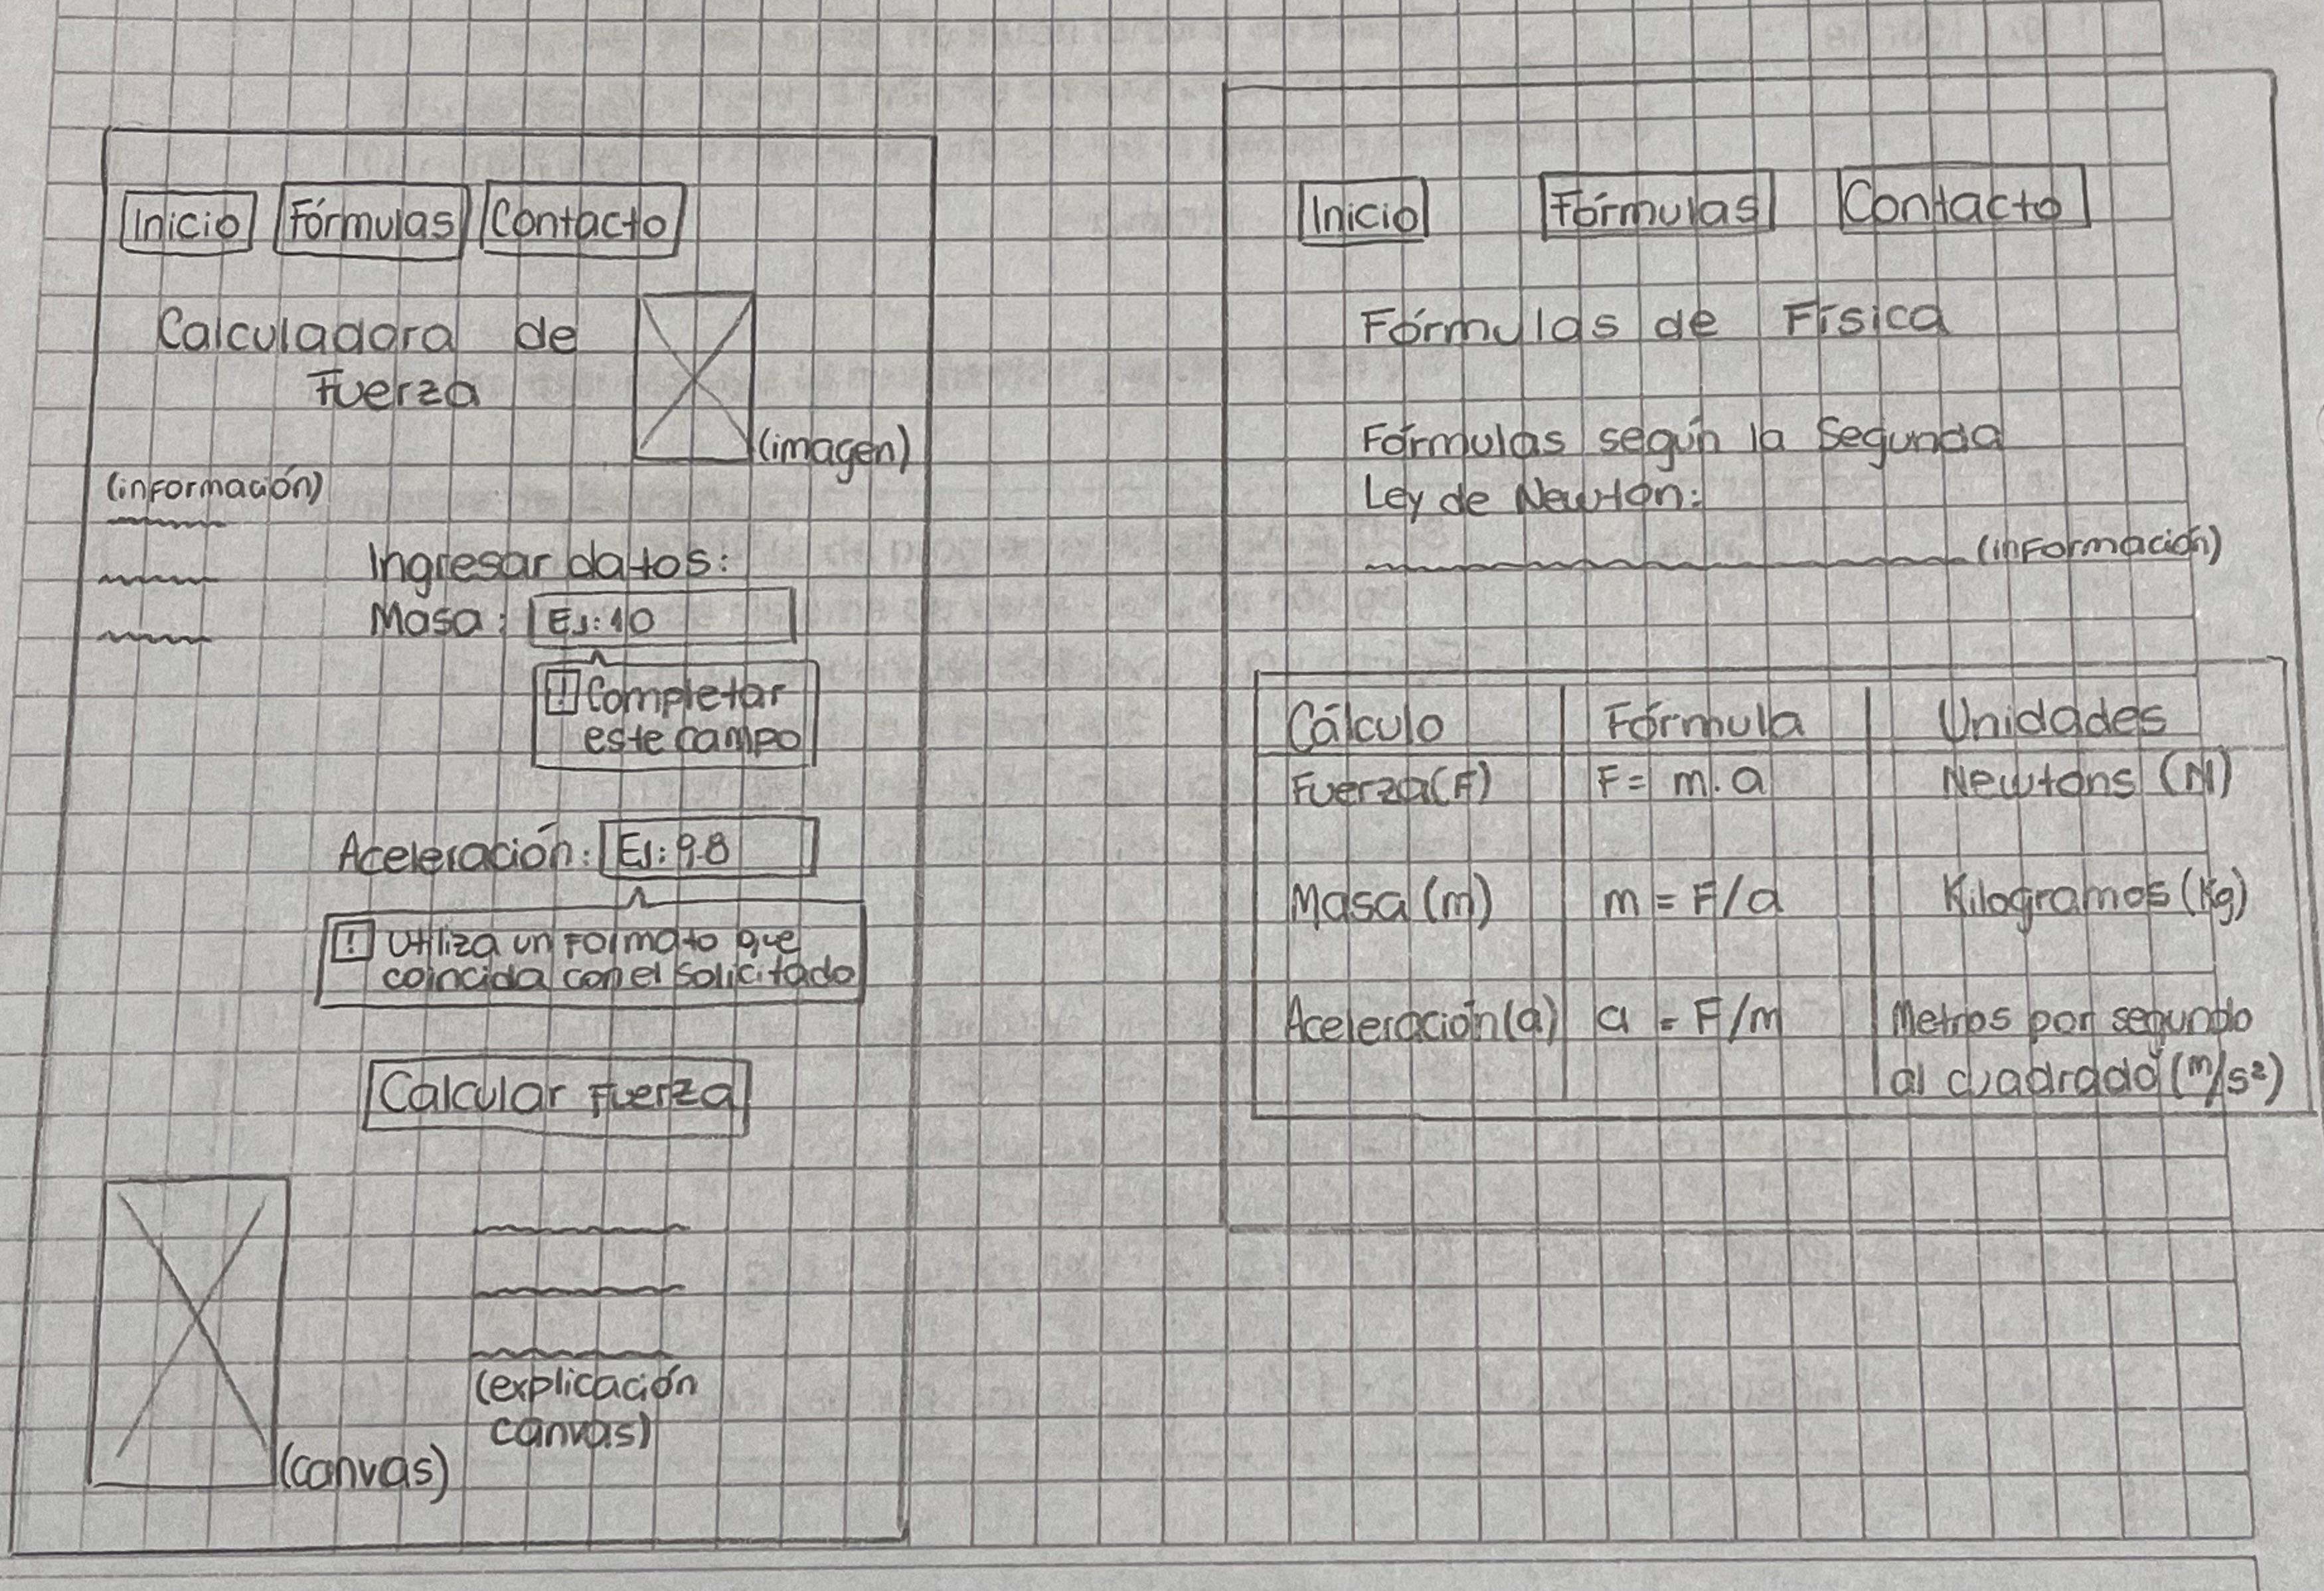 Inicio Fórmulas Contacto
Calculadora de
Fuerza
(imagen)
(información)
Ingresar datos:
Masa: EJ: 10
! Completar
este campo
Aceleración: EJ: 9.8
! Utiliza un formato que
coincida con el solicitado
Calcular Fuerza
(explicación
canvas)
(canvas)
Inicio Fórmulas Contacto
Fórmulas de Física
Fórmulas según la Segunda
Ley de Newton:
(información)
Cálculo Fórmula Unidades
Fuerza (F) F = m. a Newtons (N)
Masa (m) m = F/a Kilogramos (Kg)
Aceleración (a) a = F/m Metros por segundo
al cuadrado (m/s²)